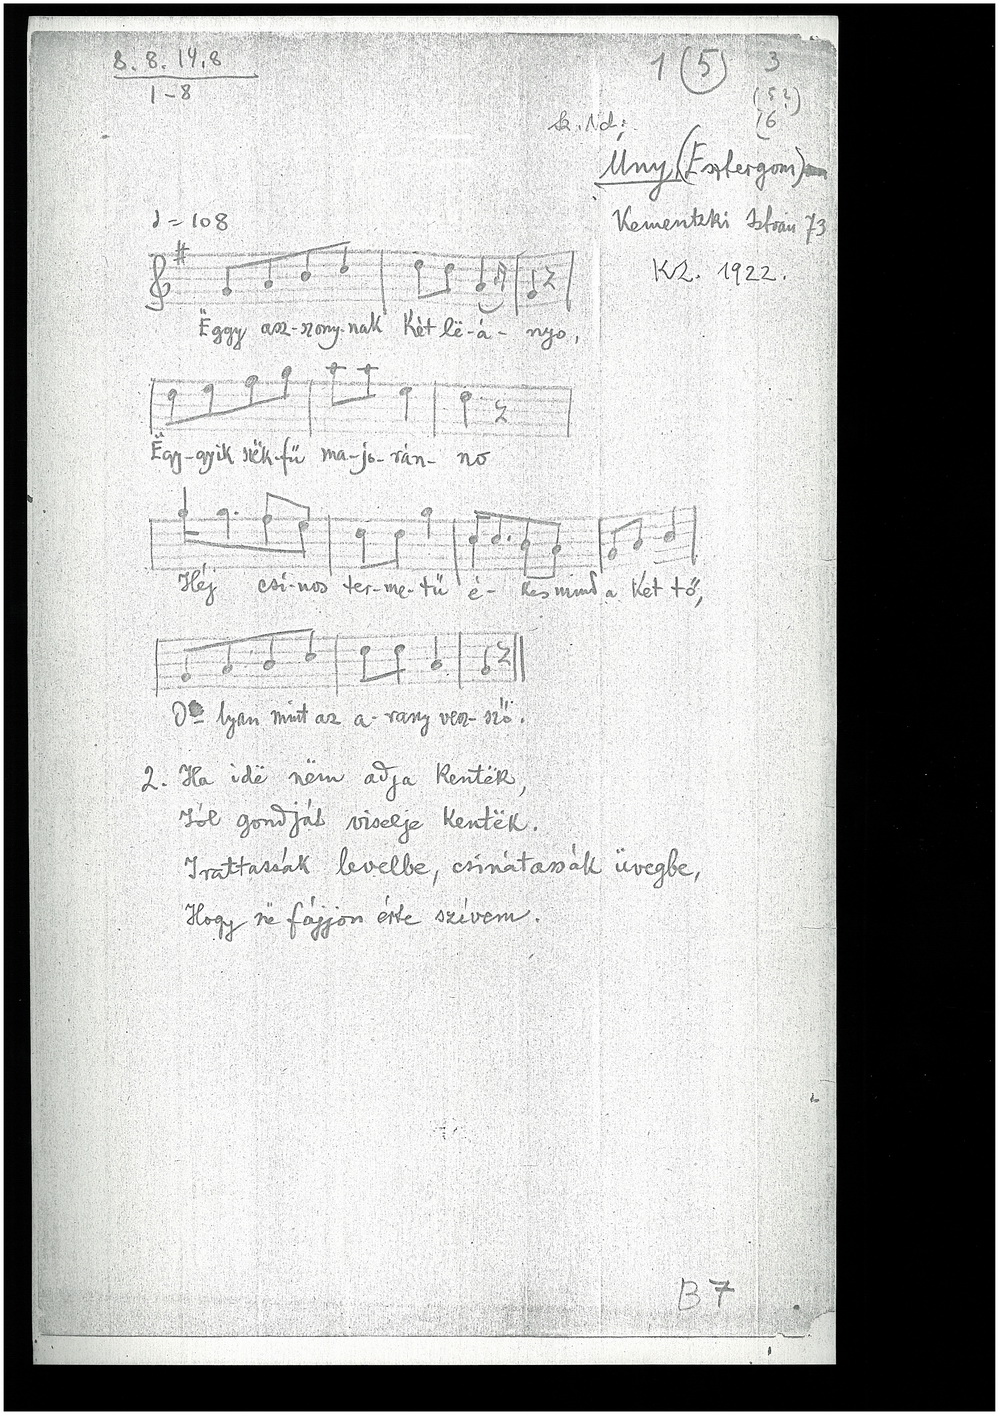 8. 8. 14. 8
1-8
1 (5) 3
(5?)
16
Úny (Esztergom)
Kementzki István 73
KZ. 1922.
♩ = 108
Ëggy asz-szony-nak két lë-á- nyo,
Ëgy-gyik szëk-fű ma-jo-rán- no
Héj csi-nos ter-me-tű é- kes mind a ket tő,
O- lyan mint az a-rany vesz-sző.
2. Ha idë nëm adja kentëk,
Jól gondját viselje kentëk.
Irattassák levelbe, csinátassák üvegbe,
Hogy në fájjon érte szívem.
B7